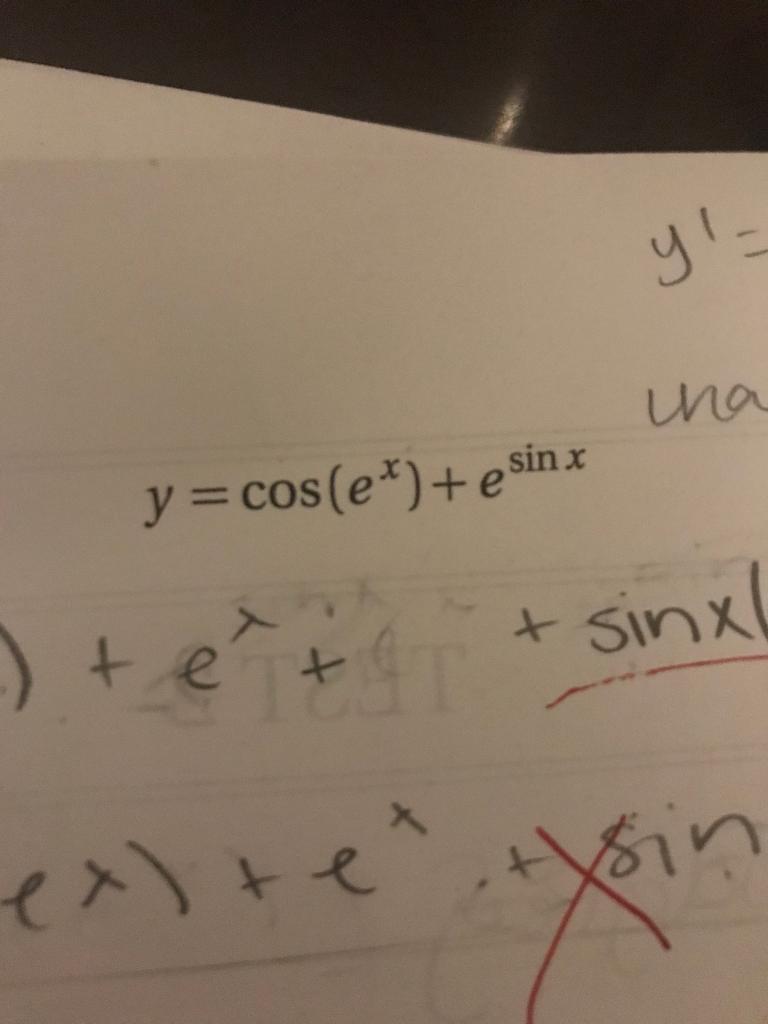 y' =
y = cos(e^x) + e^sin x
) + e^x + + sinx(
ex) + e^x . + sin